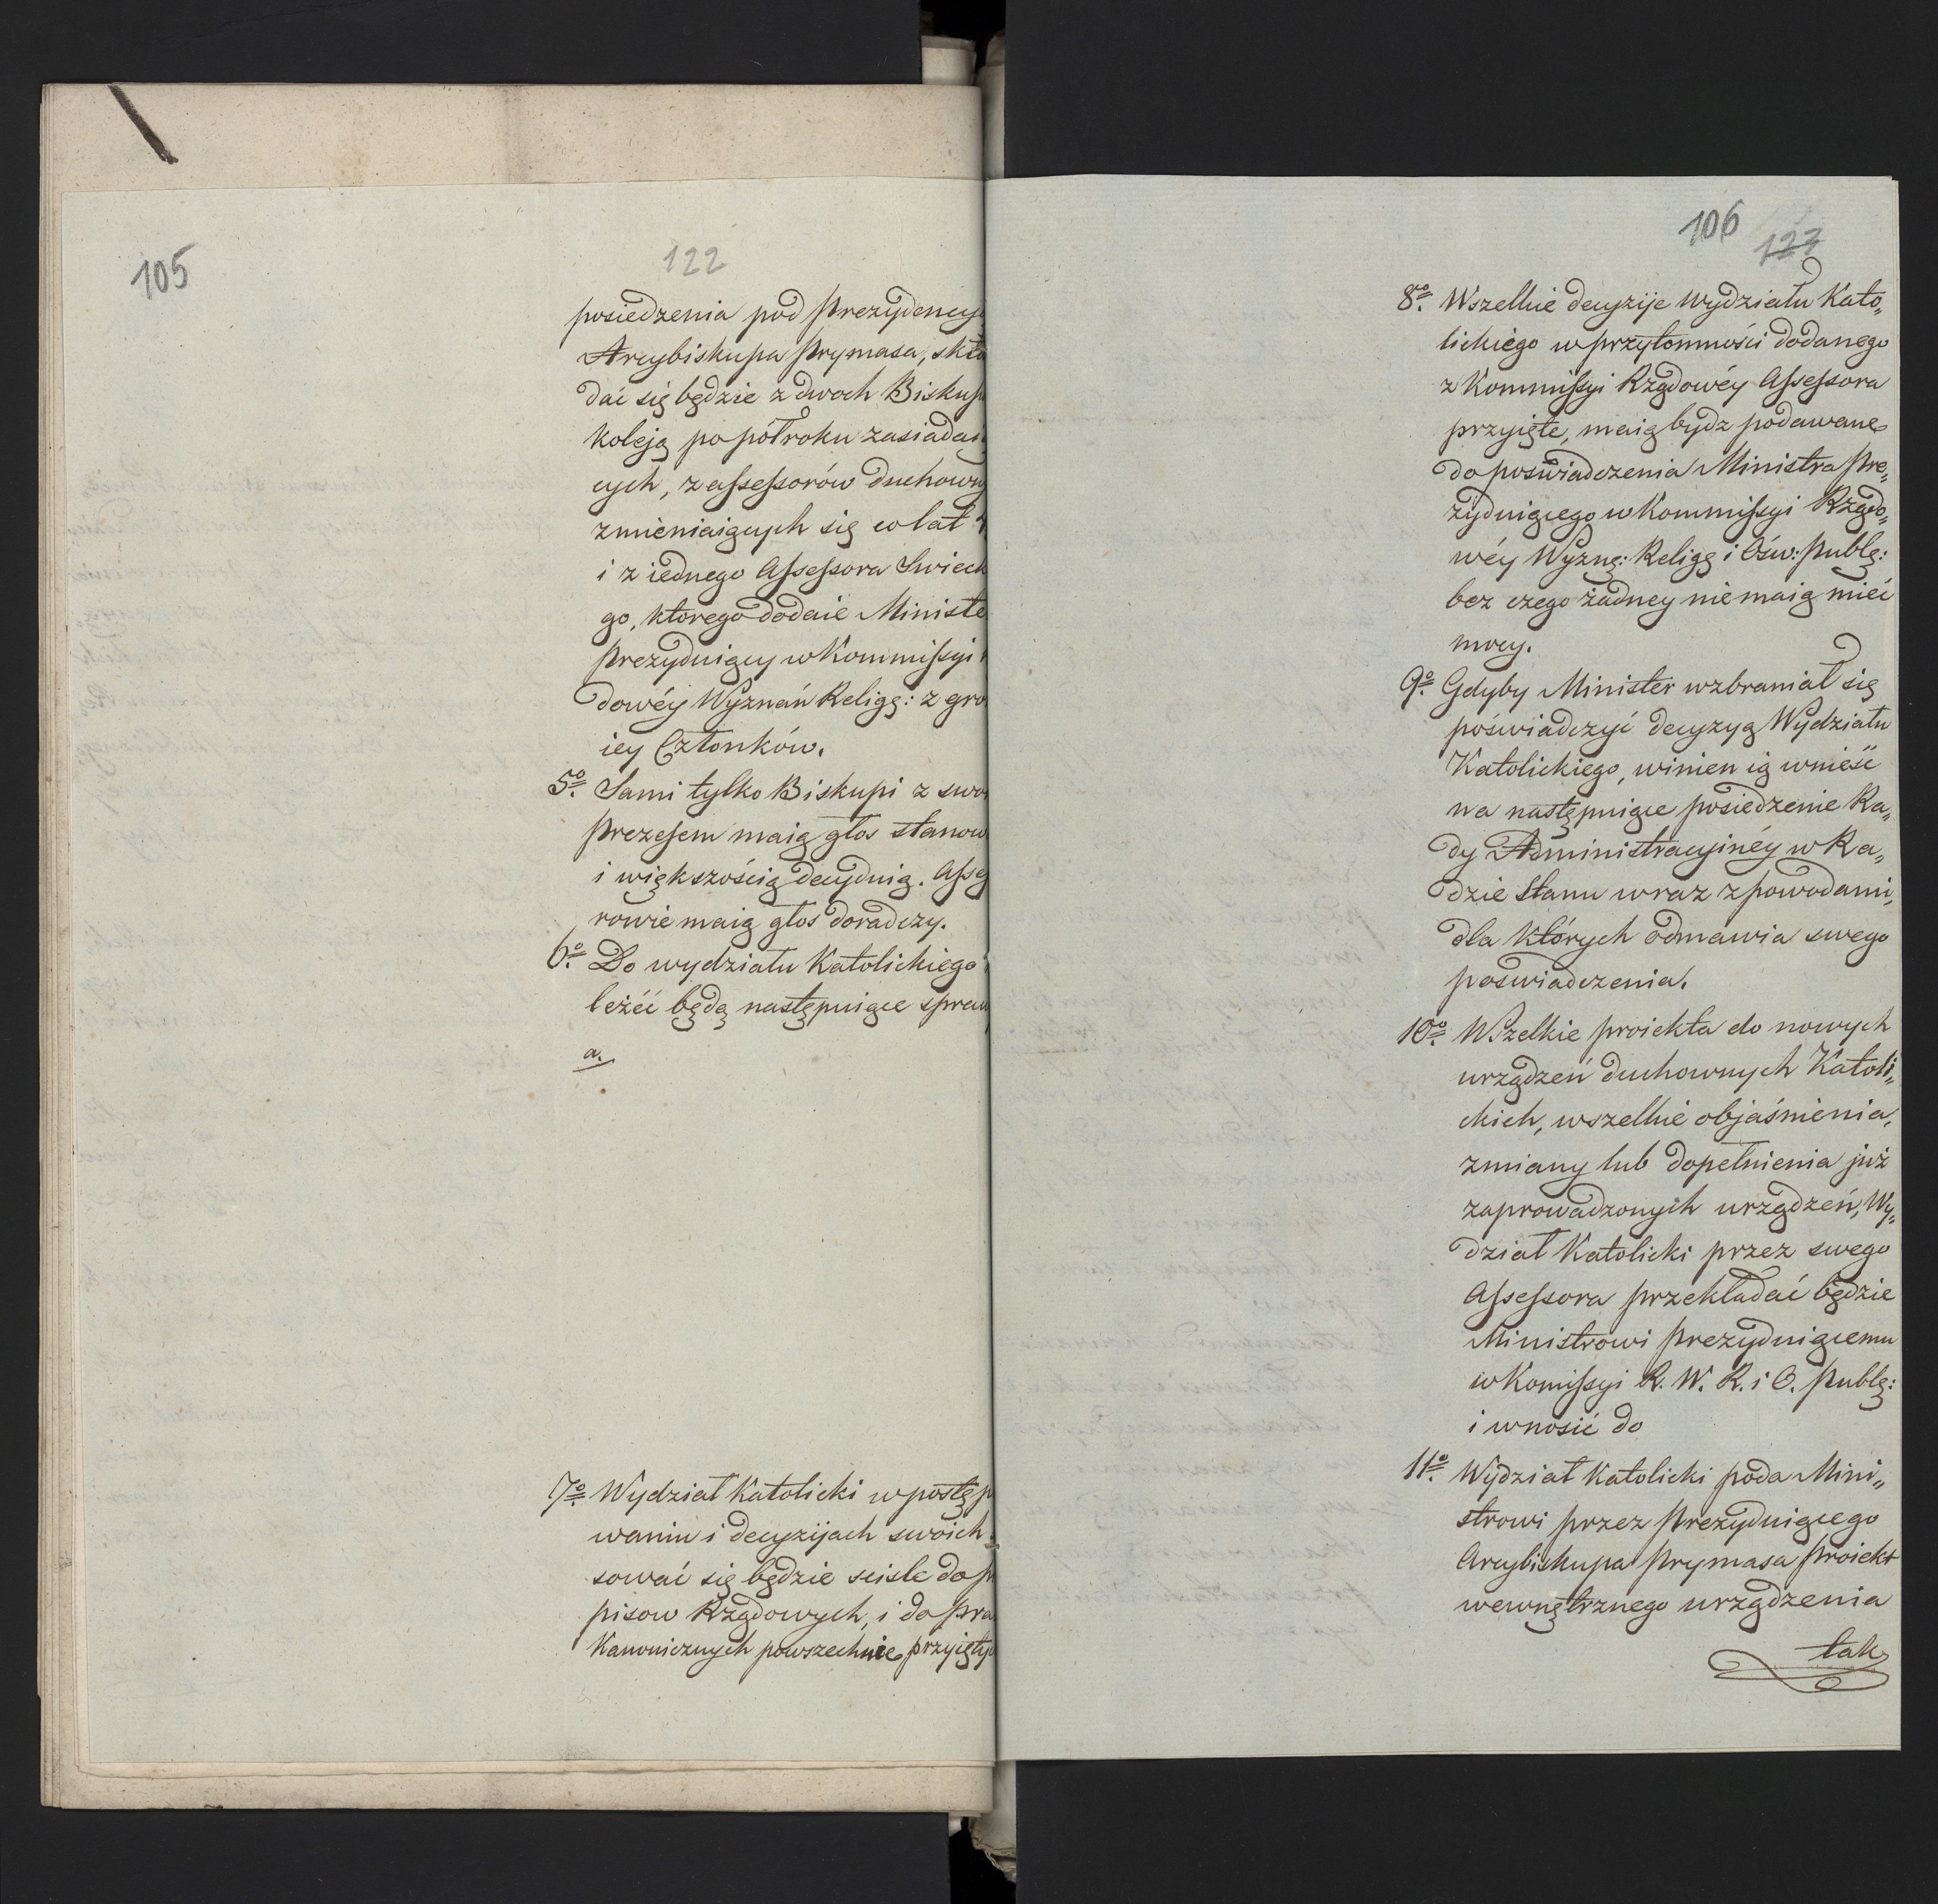 105
122
posiedzenia pod Prezydency
Arcybiskupa Prymasa, skła
dać się będzie z dwoch Biskup
koleją po półroku zasiadai
cych, z assessorów duchown
zmieniaiących się co lat
i z iednego Assessora Swiec
go, ktorego dodaie Ministe
Prezyduiący w Kommissyi
dowéy Wyznań Religę: z gro
iey Członków.
5º Sami tylko Biskupi z swo
Prezesem maią głos stanow
i większością decyduią. Asse
rowie maią głos doradczy.
6º Do wydziału Katolickiego
leżéć będą następuiące spraw
a.
7º Wydział Katolicki w postęp
waniu i decyzijach swoich
sować się będzie scisle do p
pisow Rządowych, i do pra
Kanonicznych powszechnie przyięty
106
123
8º Wszelkie decyzije Wydziału Kato„
lickiego w przytomności dodanego
z Kommissyi Rządowéy Assessora
przyięte, maią bydz podawane
do poświadczenia Ministra Pre„
zyduiącego w Kommissyi Rządo„
wéy Wyznę: Religę i Ośw: Publę:
bez czego żadney nie maią mieć
mocy.
9º Gdyby Minister wzbraniał się
poświadczyć decyzyą Wydziału
Katolickiego, winien ią wnieść
na następuiące posiedzenie Ra„
dy Administracyinéy w Ra„
dzie Stanu wraz z powodami,
dla których odmawia swego
poświadczenia.
10º Wszelkie proiekta do nowych
urządzeń duchownych Katoli„
ckich, wszelkie objaśnienia,
zmiany lub dopełnienia już
zaprowadzonych urządzeń, Wy„
dział Katolicki przez swego
Assessora przekładać będzie
Ministrowi Prezyduiącemu
w Komissyi R. W. R. i O. Publę:
i wnosić do
11º Wydział Katolicki poda Mini„
strowi przez Prezyduiącego
Arcybiskupa Prymasa Proiekt
wewnętrznego urządzenia
tak